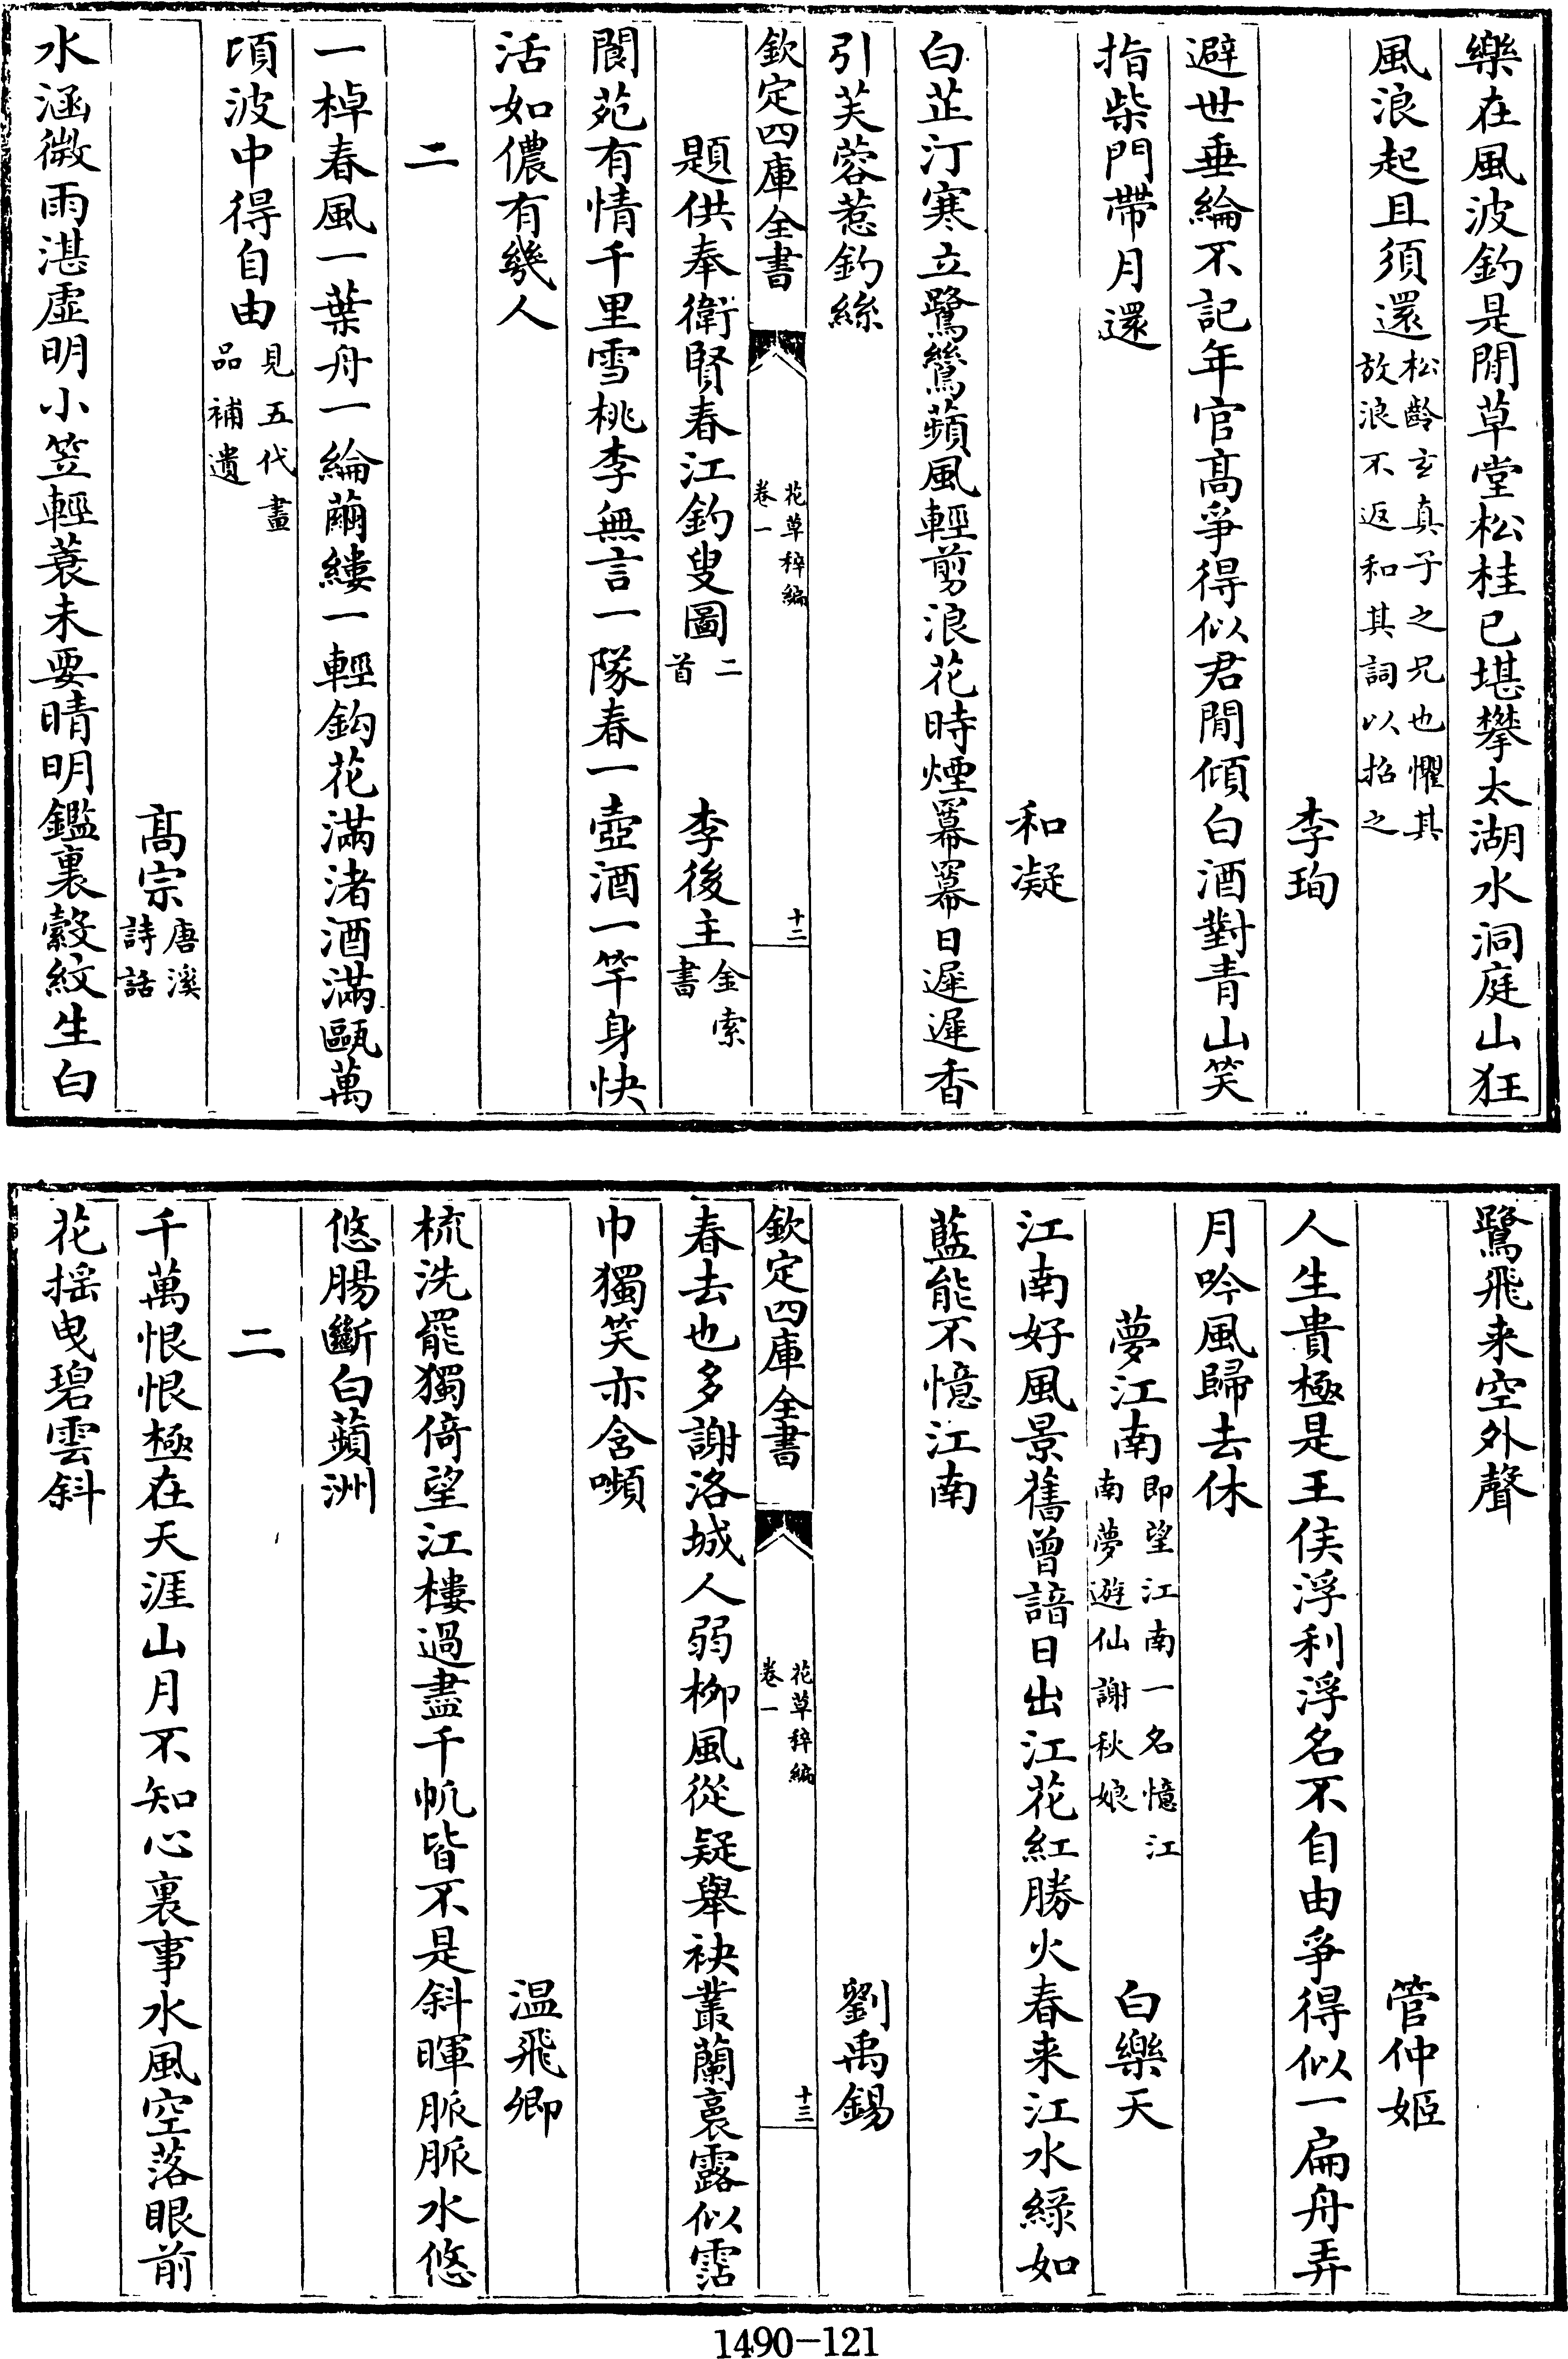 樂在風波釣是閒草堂松桂已堪攀太湖水洞庭山狂
風浪起且須還松齡玄真子之兄也懼其放浪不返和其詞以招之
李珣
避世垂綸不記年官髙爭得似君閒傾白酒對青山笑
指柴門帶月還
和凝
白芷汀寒立鷺鷥蘋風輕剪浪花時煙冪冪日遲遲香
引芙蓉惹釣絲
欽定四庫全書 花草稡編卷一 十二
題供奉衛賢春江釣叟圖二首 李後主金索書
閬苑有情千里雪桃李無言一隊春一壺酒一竿身快
活如儂有幾人
二
一棹春風一葉舟一綸繭縷一輕鈎花滿渚酒滿甌萬
頃波中得自由見五代畫品補遺
髙宗唐溪詩話
水涵微雨湛虛明小笠輕蓑未要晴明鑑裏縠紋生白
鷺飛来空外聲
管仲姬
人生貴極是王侯浮利浮名不自由爭得似一扁舟弄
月吟風歸去休
夢江南即望江南一名憶江南夢遊仙謝秋娘 白樂天
江南好風景舊曾諳日出江花紅勝火春来江水緑如
藍能不憶江南
劉禹錫
欽定四庫全書 花草稡編卷一 十三
春去也多謝洛城人弱栁風從疑舉袂叢蘭裛露似霑
巾獨笑亦含嚬
温飛卿
梳洗罷獨倚望江樓過盡千帆皆不是斜暉脈脈水悠
悠腸斷白蘋洲
二
千萬恨恨極在天涯山月不知心裏事水風空落眼前
花揺曳碧雲斜
1490-121